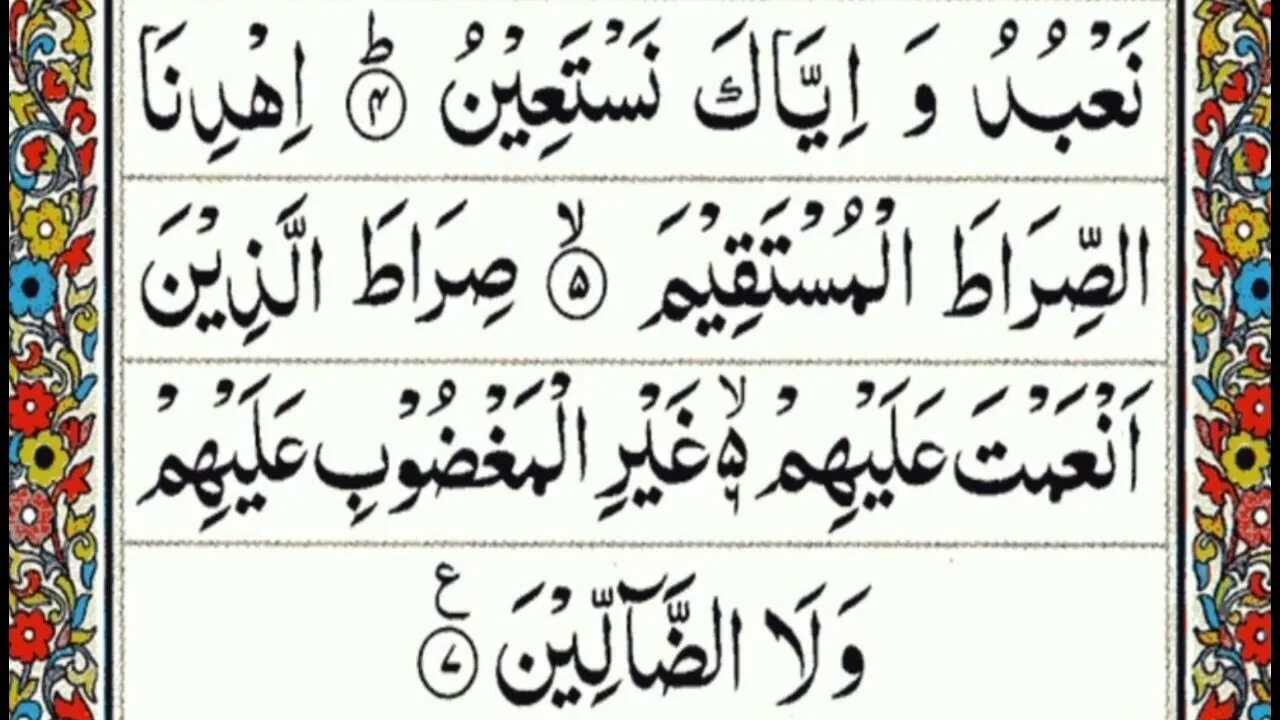 نَعْبُدُ وَ اِیَّاكَ نَسْتَعِیْنُ ؕ﴿۴﴾ اِهْدِنَا
الصِّرَاطَ الْمُسْتَقِیْمَ ۙ﴿۵﴾ صِرَاطَ الَّذِیْنَ
اَنْعَمْتَ عَلَیْهِمْ ۙ۵ ۶ غَیْرِ الْمَغْضُوْبِ عَلَیْهِمْ
وَلَا الضَّآلِّیْنَ ﴿۷﴾ ع